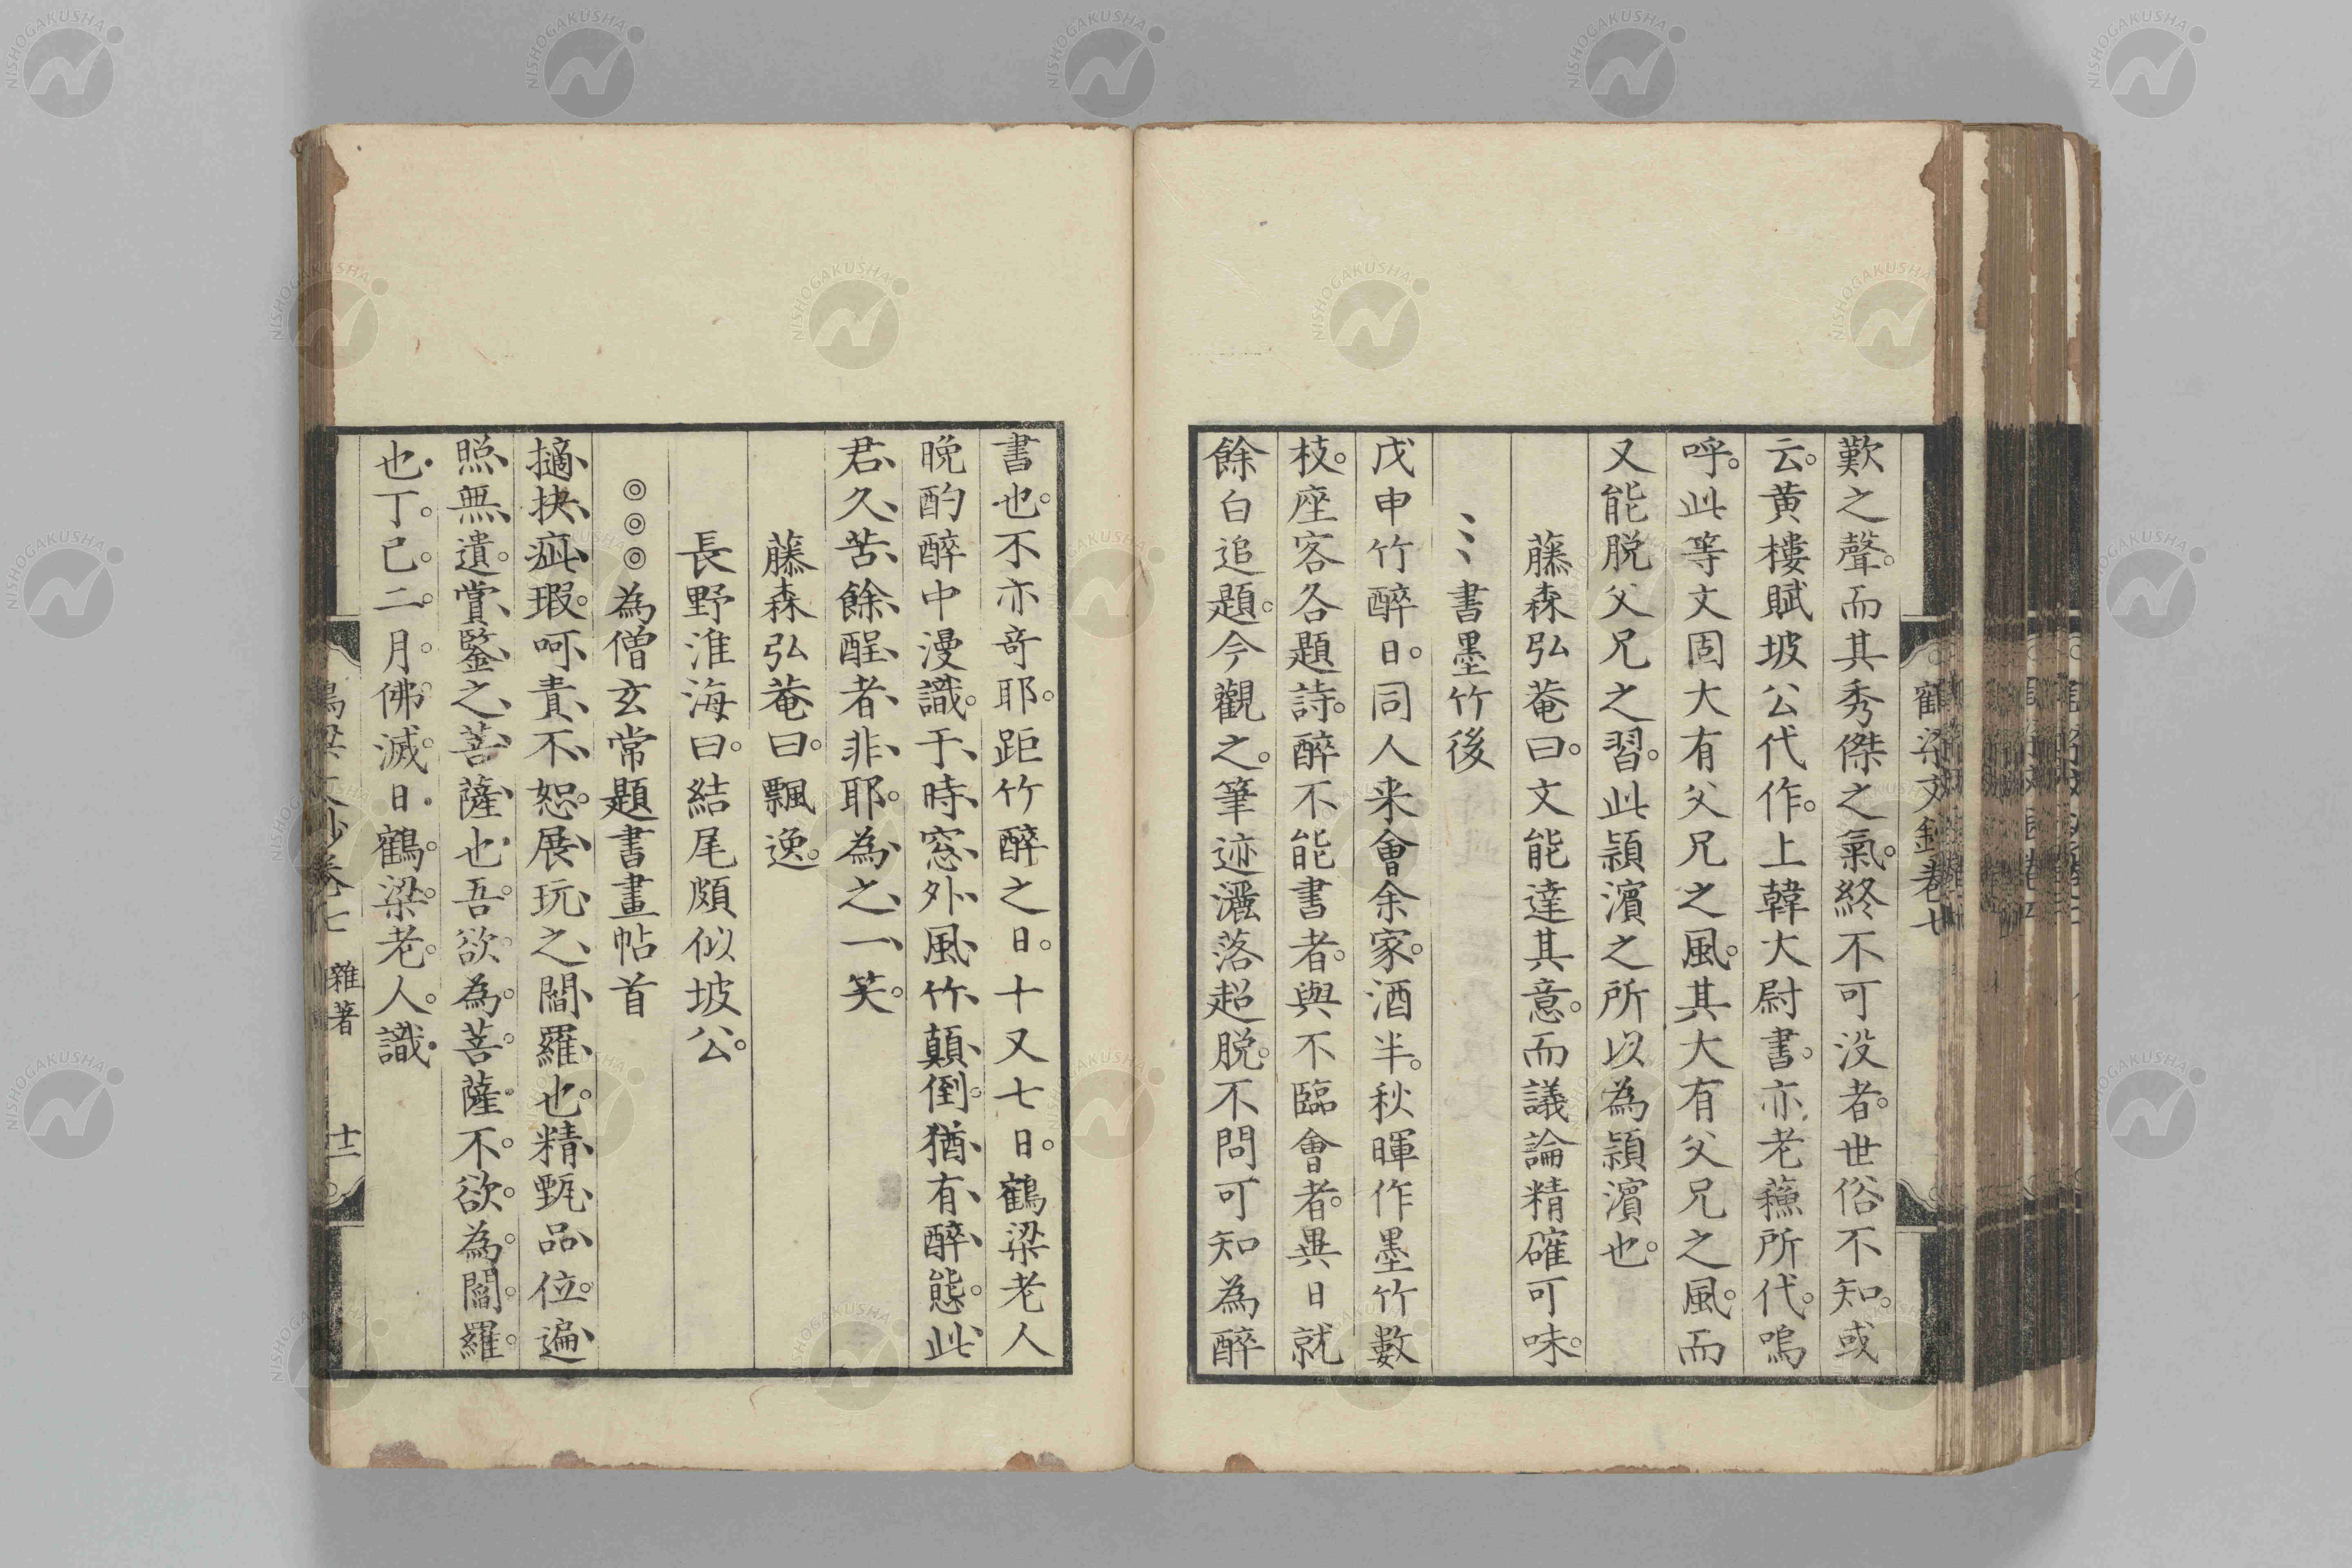 歎之聲。而其秀傑之氣。終不可没者。世俗不知。或
云。黄樓賦坡公代作。上韓大尉書。亦老蘓所代。嗚
呼。此等文固大有父兄之風。其大有父兄之風。而
又能脱父兄之習。此頴濱之所以為頴濱也。
藤森弘菴曰。文能達其意。而議論精確可味。
書墨竹後
戊申竹醉日。同人来會余家。酒半。秋暉作墨竹數
枝。座客各題詩。醉不能書者。與不臨會者。異日就
餘白追題。今觀之。筆迹灑落超脱。不問可知為醉
書也。不亦奇耶。距竹醉之日。十又七日。鶴梁老人
晩酌醉中漫識。于時窓外風竹顛倒。猶有醉態。此
君久苦餘酲者非耶。為之一笑。
藤森弘菴曰。飄逸。
長野淮海曰。結尾頗似坡公。
◎◎◎為僧玄常題書畫帖首
擿抉疵瑕。呵責不恕。展玩之閻羅也。精甄品位。遍
照無遺。賞鑒之菩薩也。吾欲為菩薩。不欲為閻羅
也。丁巳二月。佛滅日。鶴梁老人識
雜著 十二
NISHOGAKUSHA